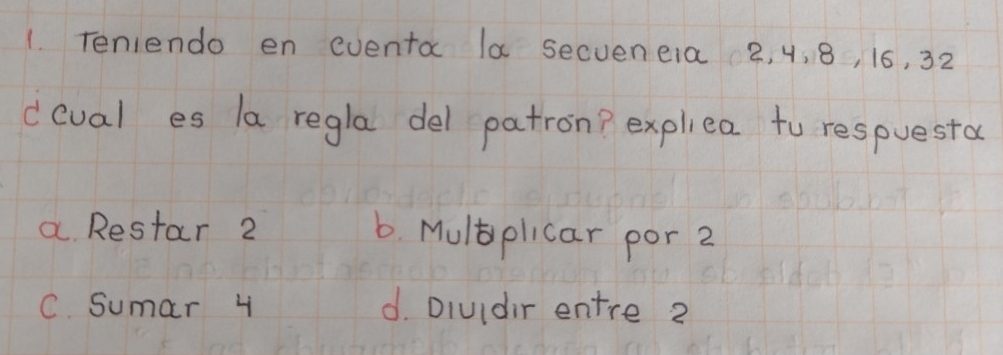 1. Teniendo en cuenta la secuencia 2, 4, 8, 16, 32
¿cual es la regla del patrón? explica tu respuesta
a. Restar 2 b. Multiplicar por 2
c. Sumar 4 d. Dividir entre 2